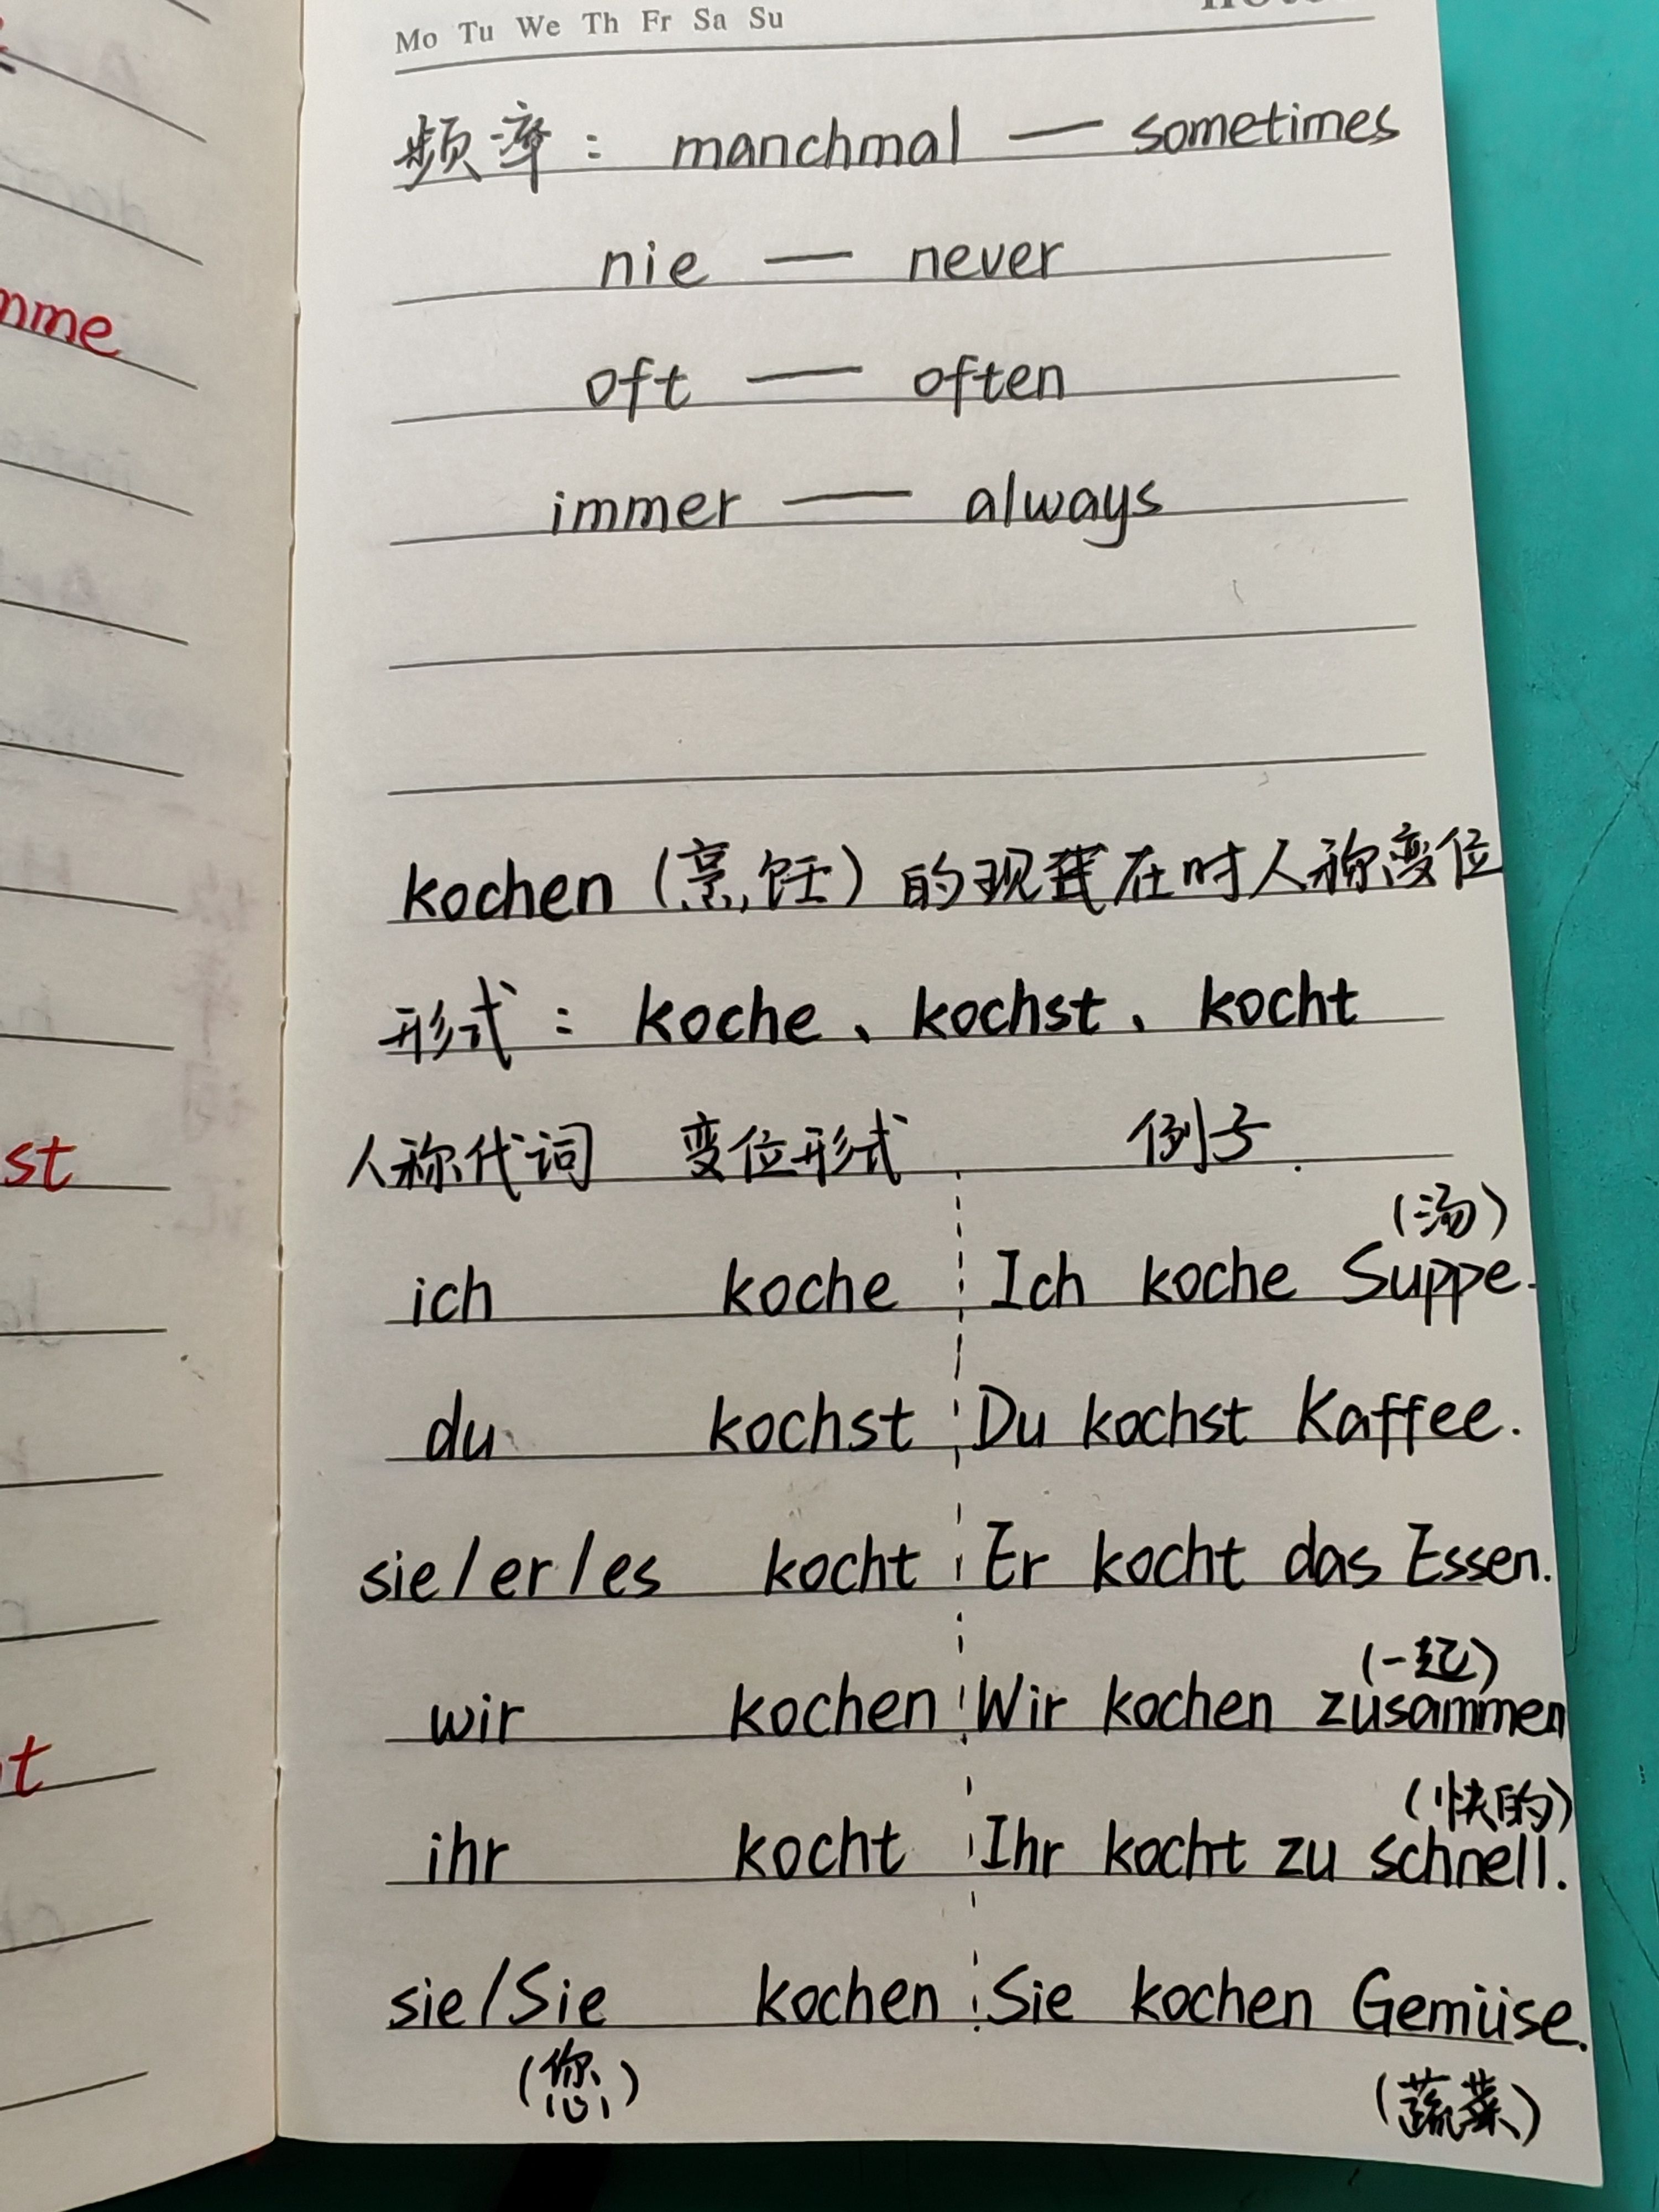 Mo Tu We Th Fr Sa Su
频率： manchmal — sometimes
nie — never
oft — often
immer — always
kochen（烹饪）的现在时人称变位
形式： koche、kochst、kocht
人称代词 变位形式 例子.
(汤)
ich koche Ich koche Suppe.
du kochst Du kochst Kaffee.
sie/er/es kocht Er kocht das Essen.
(一起)
wir kochen Wir kochen zusammen
(快的)
ihr kocht Ihr kocht zu schnell.
sie/Sie kochen Sie kochen Gemüse.
(您) (蔬菜)
mme
st
t